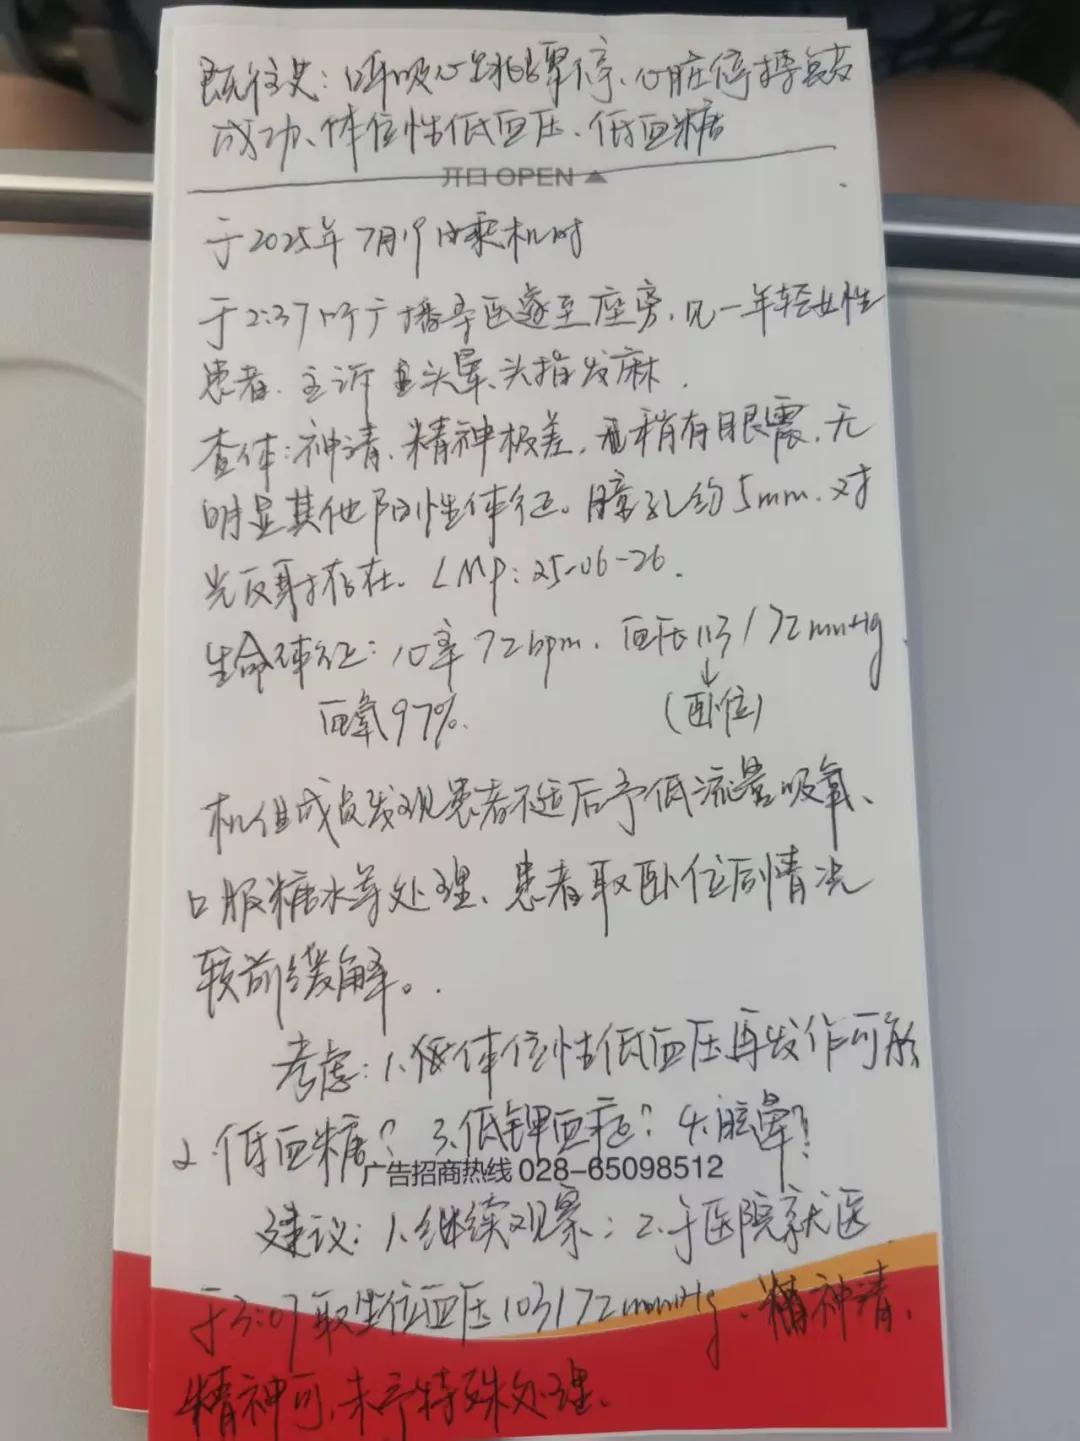 既往史：呼吸心跳骤停、心脏停搏复苏
成功、体位性低血压、低血糖
开口 OPEN
于2025年7月19日乘机时
于2:37听广播寻医遂至座旁，见一年轻女性
患者，主诉头晕、头指发麻．
查体：神清，精神极差，稍有眼震，无
明显其他阳性体征。瞳孔约5mm．对
光反射存在。LMP：25-06-26．
生命体征：心率72bpm．血压113/72mmHg．
血氧97%．（卧位）
机组成员发现患者不适后予低流量吸氧、
口服糖水等处理，患者取卧位后情况
较前缓解。
考虑：1.体位性低血压再发作可能
2.低血糖？3.低钾血症？4.眩晕？
广告招商热线 028-65098512
建议：1.继续观察；2.于医院就医．
于3:07取坐位血压103/72mmHg、精神清，
精神可，未予特殊处理．